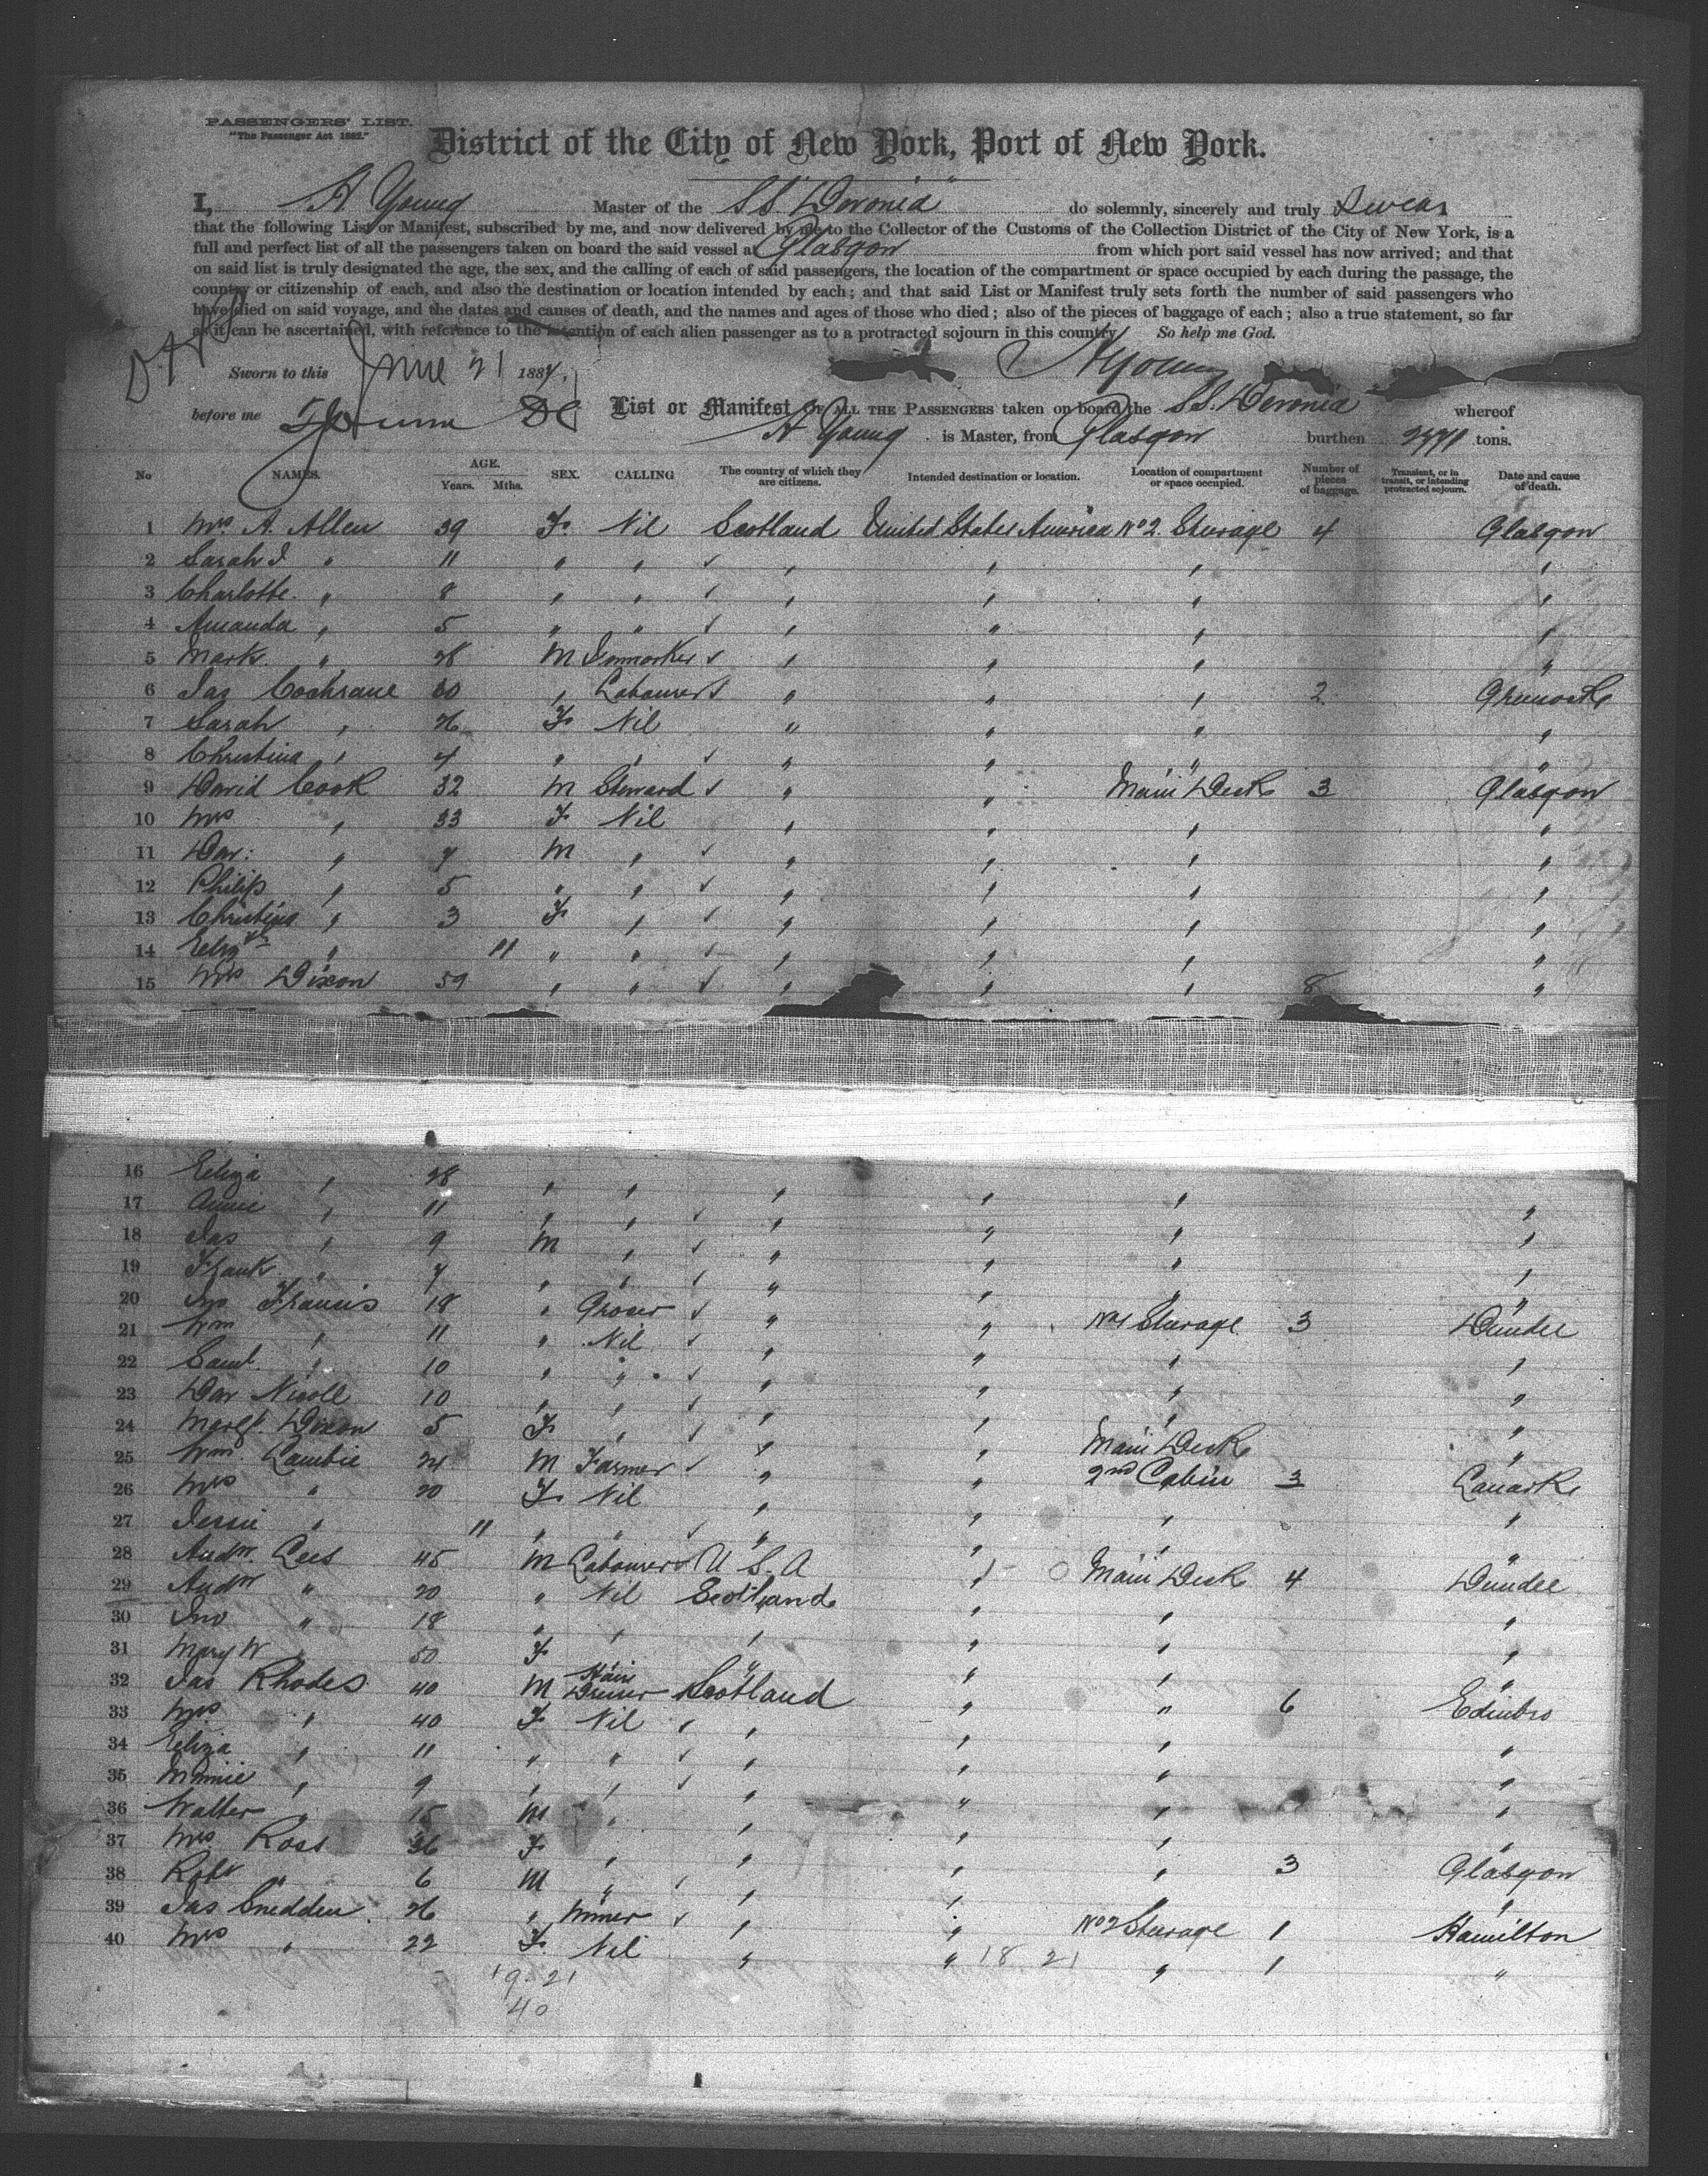 PASSENGERS' LIST.
"The Passenger Act 1882."
District of the City of New York, Port of New York.
I, A Young Master of the SS "Devonia" do solemnly, sincerely and truly Swear
that the following List or Manifest, subscribed by me, and now delivered by me to the Collector of the Customs of the Collection District of the City of New York, is a
full and perfect list of all the passengers taken on board the said vessel at Glasgow from which port said vessel has now arrived; and that
on said list is truly designated the age, the sex, and the calling of each of said passengers, the location of the compartment or space occupied by each during the passage, the
country or citizenship of each, and also the destination or location intended by each; and that said List or Manifest truly sets forth the number of said passengers who
have died on said voyage, and the dates and causes of death, and the names and ages of those who died; also of the pieces of baggage of each; also a true statement, so far
as it can be ascertained, with reference to the intention of each alien passenger as to a protracted sojourn in this country. So help me God.
Sworn to this June 21 1884, A Young
before me
List or Manifest OF ALL THE PASSENGERS taken on board the SS. Devonia whereof
A Young is Master, from Glasgow burthen tons.
No NAMES. AGE. Years. Mths. SEX. CALLING The country of which they are citizens. Intended destination or location. Location of compartment or space occupied. Number of pieces of baggage. Transient, or in transit, or intending protracted sojourn. Date and cause of death.
1 Mrs A. Allen 39 F. Nil Scotland United States America No 2. Sturage 4 Glasgow
2 Sarah J " 11 " " ✓ " " " "
3 Charlotte. " 8 " " ✓ " " " "
4 Amanda " 5 " " ✓ " " " "
5 Mark. " 28 M ✓ " " " "
6 Jas Cochrane 60 " Labourer ✓ " " " 2 Greenock
7 Sarah " 26 F Nil " " " "
8 Christina " 4 " " ✓ " " " "
9 David Cook 32 M Steward ✓ " " Main Deck 3 Glasgow
10 Mrs " 33 F Nil " " " "
11 Dav: " 7 M " ✓ " " " "
12 Philip " 5 " " ✓ " " " "
13 Christina " 3 F " ✓ " " " "
14 Elizth " 11 " " ✓ " " " "
15 Mrs Dixon 59 " " ✓ " " " 8 "
16 Eliza " 28 " " " " "
17 Annie " 11 " " ✓ " " " "
18 Jas " 9 M " ✓ " " " "
19 Frank " 7 " " ✓ " " " "
20 Jno Francis 18 " Grocer ✓ " " No 1 Sturage 3 Dundee
21 Wm " 11 " Nil ✓ " " " "
22 Saml. " 10 " " ✓ " " " "
23 Dav Nicoll 10 " " ✓ " " " "
24 Margt. Dixon 5 F " ✓ " " Main Deck "
25 Wm. Lambie 24 M Farmer ✓ " " 2nd Cabin 3 Lanark
26 Mrs " 20 F Nil " " " "
27 Jessie " 11 " " ✓ " " " "
28 Andw. Lees 45 M Labourer ✓ U S. A " Main Deck 4 Dundee
29 Andw " 20 " Nil Scotland " " "
30 Jno " 18 " " " " " "
31 Mary W " 50 F " " " "
32 Jas Rhodes 40 M Hair Dresser Scotland " " 6 Edinbro
33 Mrs " 40 F Nil ✓ " " " "
34 Eliza " 11 " " ✓ " " " "
35 Minnie " 9 " " ✓ " " " "
36 Walter " 15 M " " " " "
37 Mrs Ross 36 F " " " " 3 Glasgow
38 Robt " 6 M " ✓ " " " "
39 Jas Snedden. 26 " Miner ✓ " " No 2 Sturage 1 Hamilton
40 Mrs " 22 F. Nil " " " 1 "
19. 21 18 21
40